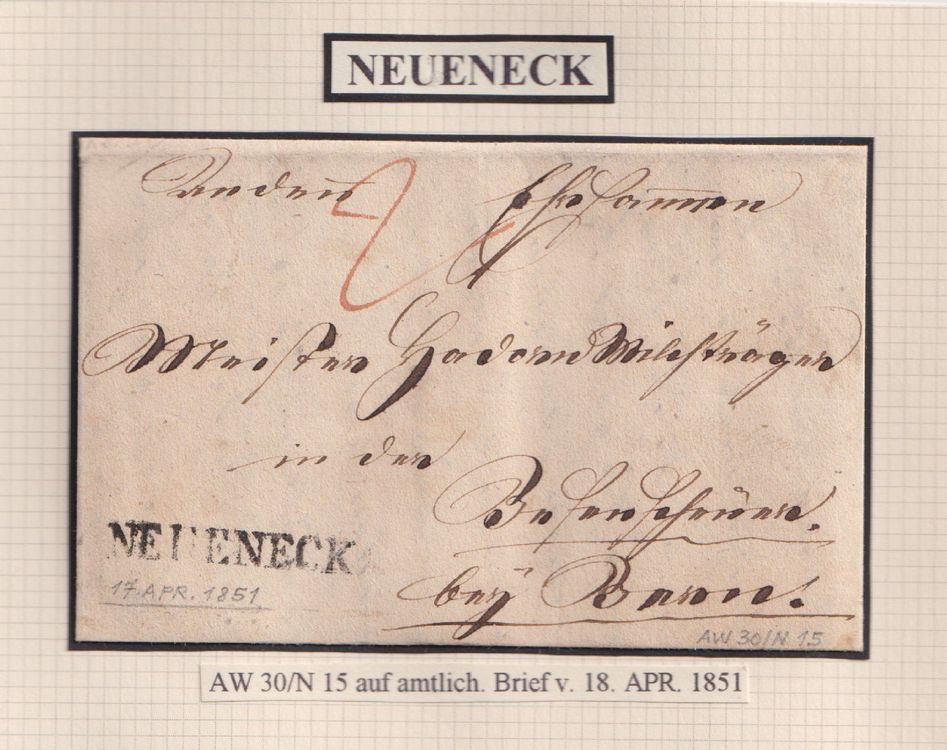 NEUENECK
An den Ehrsamen
2
Meister Hadorn Milchträger
in der
Besenscheuer.
bey Bern.
NEUENECK
17. APR. 1851
AW 30/N 15
AW 30/N 15 auf amtlich. Brief v. 18. APR. 1851